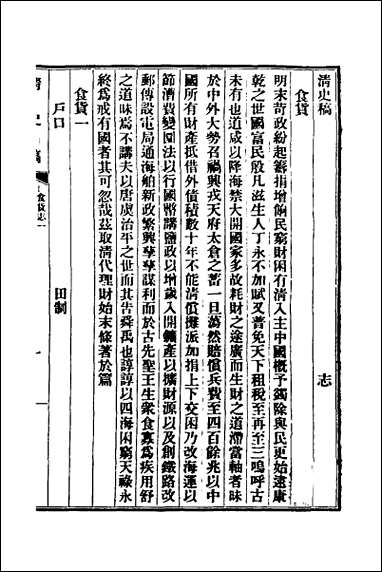 清史稿
食貨
志
明末苛政紛起籌捐增餉民窮財困有清入主中國概予蠲除與民更始逮康
乾之世國富民殷凡滋生人丁永不加賦又普免天下租稅至再至三嗚呼古
未有也道咸以降海禁大開國家多故耗財之途廣而生財之道滯當軸者昧
於中外大勢召禍興戎天府太倉之蓄一旦蕩然賠償兵費至四百餘兆以中
國所有財產抵借外債積數十年不能清償攤派加捐上下交困乃改海運以
節漕費變圜法以行國幣講鹽政以增歲入開鑛產以擴財源以及創鐵路改
郵傳設電局通海舶新政繁興孳孳謀利而於古先聖王生衆食寡爲疾用舒
之道昧焉不講夫以唐虞治平之世而其告舜禹也諄諄以四海困窮天祿永
終爲戒有國者其可忽哉茲取清代理財始末條著於篇
食貨一
戶口
田制
清史稿
食貨志一
一